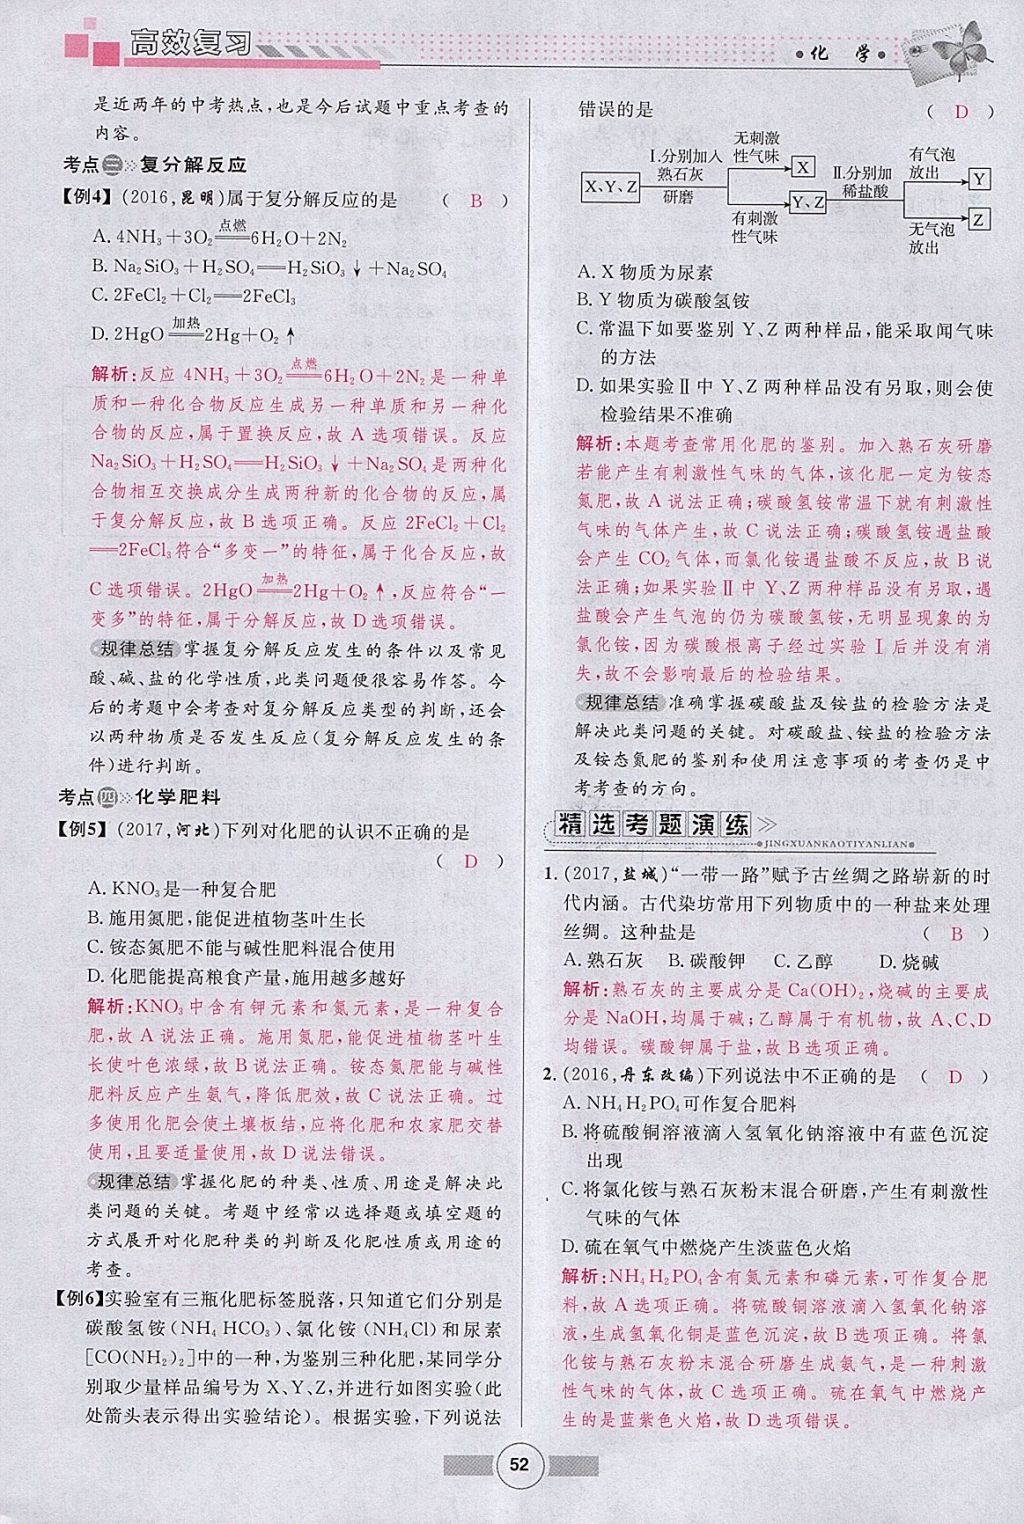 高效复习
·化 学·
是近两年的中考热点,也是今后试题中重点考查的
内容。
考点三 复分解反应
【例4】(2016,昆明)属于复分解反应的是 ( B )
A. 4NH₃+3O₂ 点燃══ 6H₂O+2N₂
B. Na₂SiO₃+H₂SO₄══H₂SiO₃↓+Na₂SO₄
C. 2FeCl₂+Cl₂══2FeCl₃
D. 2HgO 加热══ 2Hg+O₂↑
解析:反应 4NH₃+3O₂ 点燃══ 6H₂O+2N₂是一种单
质和一种化合物反应生成另一种单质和另一种化
合物的反应,属于置换反应,故 A 选项错误。反应
Na₂SiO₃+H₂SO₄══H₂SiO₃↓+Na₂SO₄是两种化
合物相互交换成分生成两种新的化合物的反应,属
于复分解反应,故 B 选项正确。反应 2FeCl₂+Cl₂
══2FeCl₃符合“多变一”的特征,属于化合反应,故
C 选项错误。2HgO 加热══ 2Hg+O₂↑,反应符合“一
变多”的特征,属于分解反应,故 D 选项错误。
规律总结 掌握复分解反应发生的条件以及常见
酸、碱、盐的化学性质,此类问题便很容易作答。今
后的考题中会考查对复分解反应类型的判断,还会
以两种物质是否发生反应(复分解反应发生的条
件)进行判断。
考点四 化学肥料
【例5】(2017,河北)下列对化肥的认识不正确的是
( D )
A. KNO₃是一种复合肥
B. 施用氮肥,能促进植物茎叶生长
C. 铵态氮肥不能与碱性肥料混合使用
D. 化肥能提高粮食产量,施用越多越好
解析:KNO₃中含有钾元素和氮元素,是一种复合
肥,故 A 说法正确。施用氮肥,能促进植物茎叶生
长使叶色浓绿,故 B 说法正确。铵态氮肥能与碱性
肥料反应产生氨气,降低肥效,故 C 说法正确。过
多使用化肥会使土壤板结,应将化肥和农家肥交替
使用,且要适量使用,故 D 说法错误。
规律总结 掌握化肥的种类、性质、用途是解决此
类问题的关键。考题中经常以选择题或填空题的
方式展开对化肥种类的判断及化肥性质或用途的
考查。
【例6】实验室有三瓶化肥标签脱落,只知道它们分别是
碳酸氢铵(NH₄HCO₃)、氯化铵(NH₄Cl)和尿素
[CO(NH₂)₂]中的一种,为鉴别三种化肥,某同学分
别取少量样品编号为 X、Y、Z,并进行如图实验(此
处箭头表示得出实验结论)。根据实验,下列说法
错误的是 ( D )
X、Y、Z
Ⅰ.分别加入
熟石灰
研磨
无刺激
性气味
X
有刺激
性气味
Y、Z
Ⅱ.分别加
稀盐酸
有气泡
放出
Y
无气泡
放出
Z
A. X 物质为尿素
B. Y 物质为碳酸氢铵
C. 常温下如要鉴别 Y、Z 两种样品,能采取闻气味
的方法
D. 如果实验Ⅱ中 Y、Z 两种样品没有另取,则会使
检验结果不准确
解析:本题考查常用化肥的鉴别。加入熟石灰研磨
若能产生有刺激性气味的气体,该化肥一定为铵态
氮肥,故 A 说法正确;碳酸氢铵常温下就有刺激性
气味的气体产生,故 C 说法正确;碳酸氢铵遇盐酸
会产生 CO₂气体,而氯化铵遇盐酸不反应,故 B 说
法正确;如果实验Ⅱ中 Y、Z 两种样品没有另取,遇
盐酸会产生气泡的仍为碳酸氢铵,无明显现象的为
氯化铵,因为碳酸根离子经过实验Ⅰ后并没有消
失,故不会影响最后的检验结果。
规律总结 准确掌握碳酸盐及铵盐的检验方法是
解决此类问题的关键。对碳酸盐、铵盐的检验方法
及铵态氮肥的鉴别和使用注意事项的考查仍是中
考考查的方向。
精选考题演练
JINGXUANKAOTIYANLIAN
1. (2017,盐城)“一带一路”赋予古丝绸之路崭新的时
代内涵。古代染坊常用下列物质中的一种盐来处理
丝绸。这种盐是 ( B )
A. 熟石灰 B. 碳酸钾 C. 乙醇 D. 烧碱
解析:熟石灰的主要成分是 Ca(OH)₂,烧碱的主要成
分是 NaOH,均属于碱;乙醇属于有机物,故 A、C、D
均错误。碳酸钾属于盐,故 B 选项正确。
2. (2016,丹东改编)下列说法中不正确的是 ( D )
A. NH₄H₂PO₄可作复合肥料
B. 将硫酸铜溶液滴入氢氧化钠溶液中有蓝色沉淀
出现
C. 将氯化铵与熟石灰粉末混合研磨,产生有刺激性
气味的气体
D. 硫在氧气中燃烧产生淡蓝色火焰
解析:NH₄H₂PO₄含有氮元素和磷元素,可作复合肥
料,故 A 选项正确。将硫酸铜溶液滴入氢氧化钠溶
液,生成氢氧化铜是蓝色沉淀,故 B 选项正确。将氯
化铵与熟石灰粉末混合研磨生成氨气,是一种刺激性
气味的气体,故 C 选项正确。硫在氧气中燃烧产
生的是蓝紫色火焰,故 D 选项错误。
52